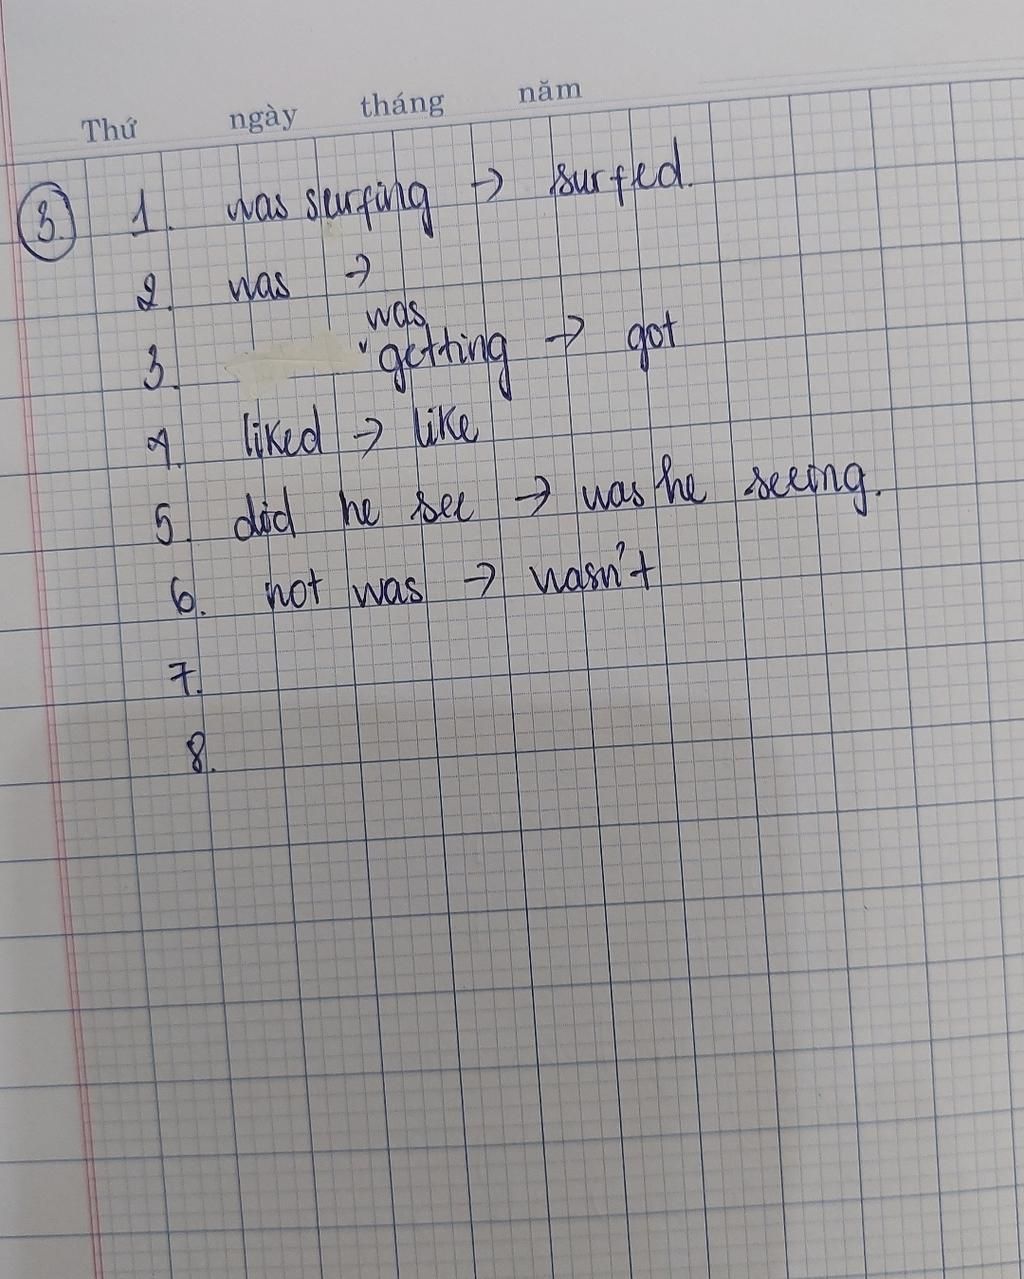 Thứ ngày tháng năm
3. 1. was surfing → surfed.
2. was →
was
3. getting → got
4. liked → like
5. did he see → was he seeing.
6. not was → wasn't
7.
8.